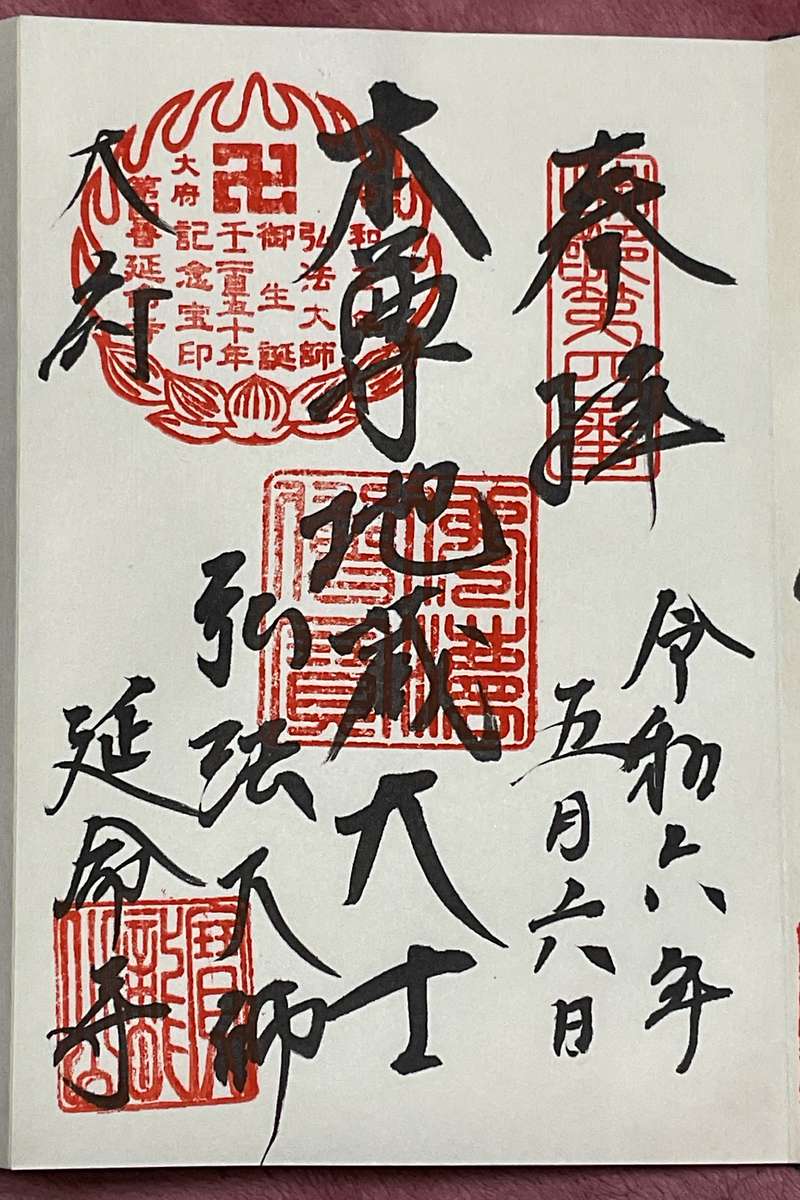 奉拝
令和六年
五月六日
本尊地蔵大士
弘法大師
御生誕
千二百五十年
記念宝印
大府
第四番延命寺
弘法大師
大府
延命寺